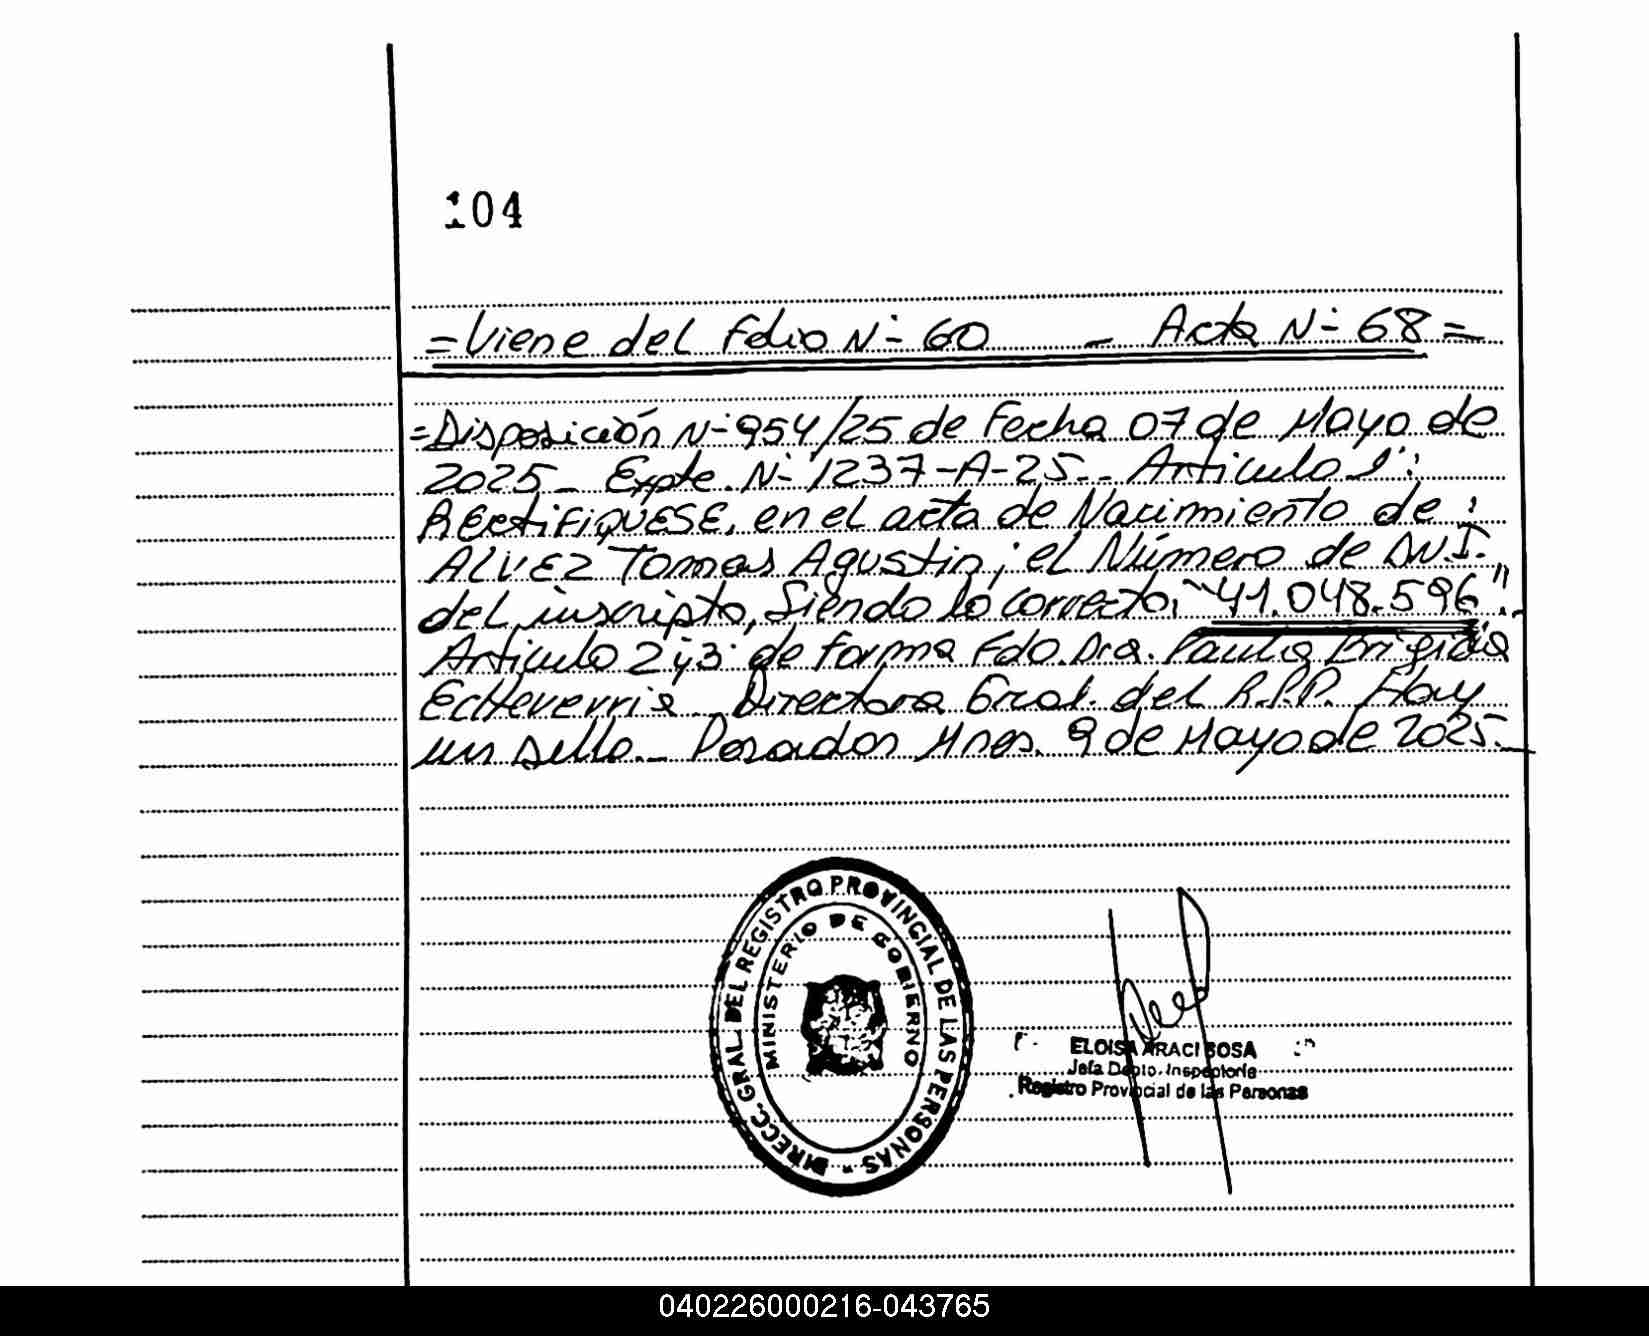 104
=Viene del Folio N- 60 - Acta N- 68=
=Disposición N-954/25 de Fecha 07 de Mayo de
2025- Expte. N- 1237-A-25.- Articulo 1:
RECtiFiQUESE, en el acta de Nacimiento de:
ALVEZ Tomas Agustin; el Número de D.N.I.
del inscripto, Siendo lo correcto; "41.048.596".-
Articulo 2 y 3: de forma Fdo. Dra. Paula Brigida
Echeverria Directora Gral. del R.P.P. Hay
un sello.- Posadas Mnes. 9 de Mayo de 2025.-
DIRECC. GRAL. DEL REGISTRO PROVINCIAL DE LAS PERSONAS
MINISTERIO DE GOBIERNO
ELOISA ARACI SOSA
Jefa Depto. Inspectoria
Registro Provincial de las Personas
040226000216-043765